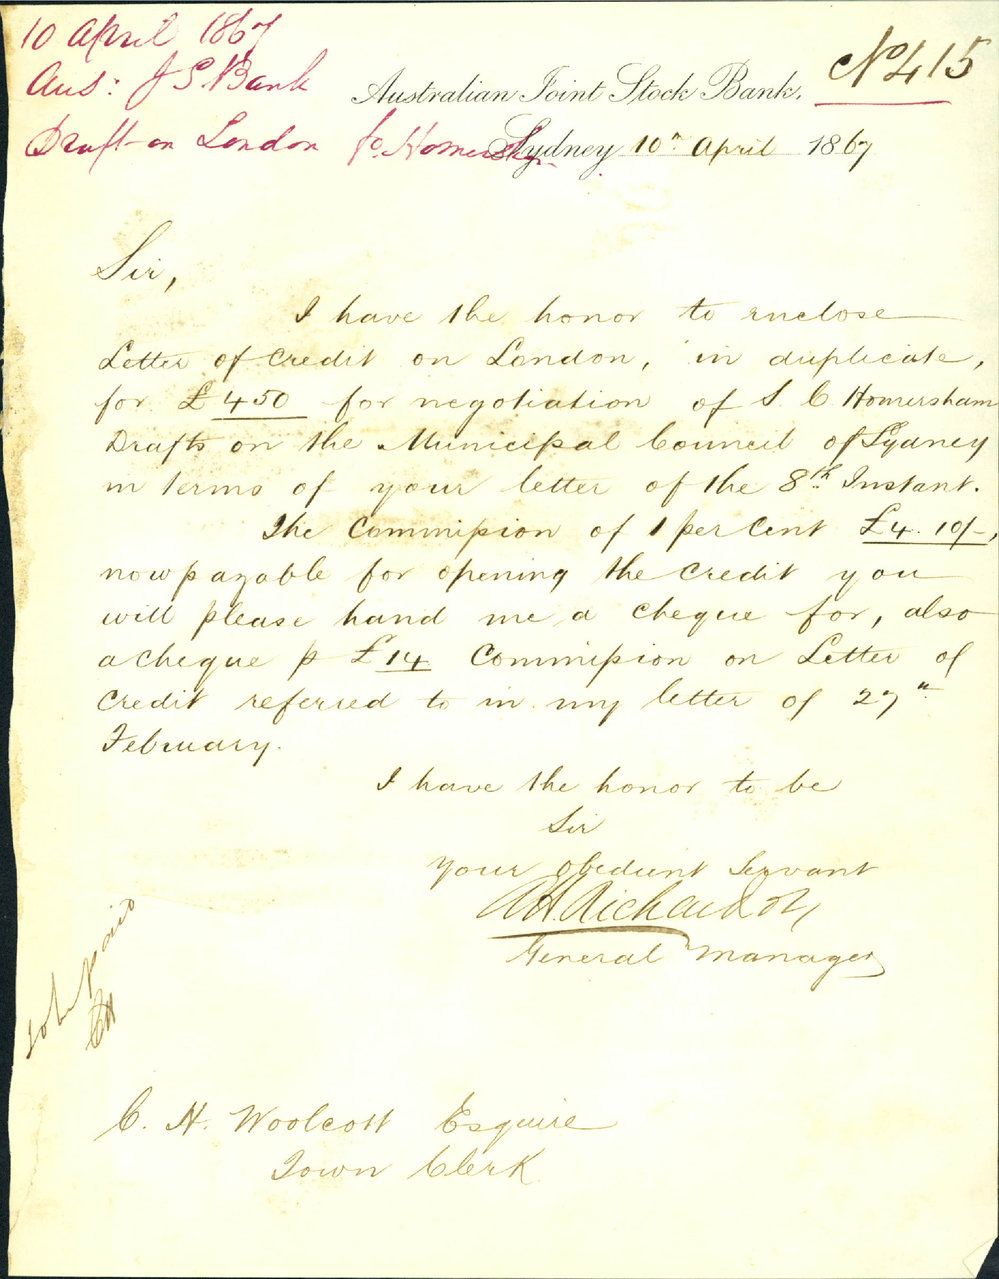 10 April 1867
Aus: J S. Bank
Draft on London fo. Homersham
No 415
Australian Joint Stock Bank.
Sydney 10th April 1867
Sir,
I have the honor to enclose
Letter of Credit on London, in duplicate,
for £450 for negotiation of S. C. Homersham
Drafts on the Municipal Council of Sydney
in terms of your letter of the 8th Instant.
The Commission of 1 per Cent £4.10/-,
now payable for opening the Credit you
will please hand me a cheque for, also
a cheque p £14 Commission on Letter of
Credit referred to in my letter of 27th
February.
I have the honor to be
Sir
Your obedient Servant
A H Richardson
General Manager
to be paid
CH
C. H. Woolcott Esquire
Town Clerk